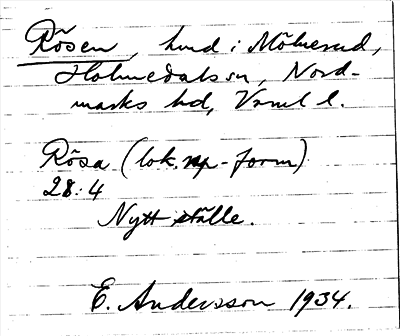 Rösen, hmd i Mölnerud,
Holmedals sn, Nord-
marks hd, Vrml l.
Rösa (lok. up-form)
28:4
Nytt ställe.
E. Andersson 1934.